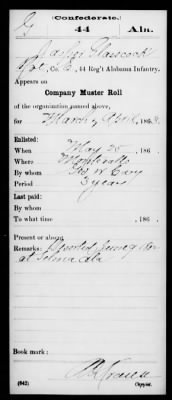 Confederate.
G 44 Ala.
Taylor Glasscock
Pvt, Co. G, 44 Reg't Alabama Infantry.
Appears on
Company Muster Roll
of the organization named above,
for March & April, 186 3.
Enlisted:
When May 25, 186 .
Where
By whom Geo W Cary
Period 3 years
Last paid:
By whom
To what time , 186 .
Present or absent
Remarks: Deserted
at Selma Ala
Book mark:
(642) Copyist.